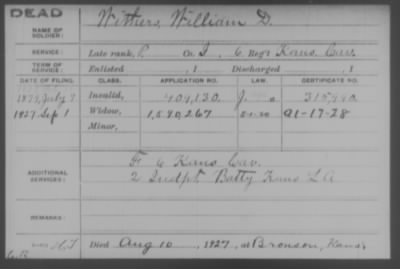 DEAD
NAME OF SOLDIER: Withers, William D.
SERVICE: Late rank, P Co. I, 6 Reg't Kans. Cav.
TERM OF SERVICE: Enlisted , 1 Discharged , 1
DATE OF FILING. CLASS. APPLICATION NO. LAW. CERTIFICATE NO.
July 7 Invalid, 404,130. J.
1927 Sep 1 Widow, 1,580,267 A1-17-28
Minor,
ADDITIONAL SERVICES: F 6 Kans Cav.
2 Indpt. Batty Kans L A
REMARKS:
Died Aug 10, 1927, at Bronson, Kans.